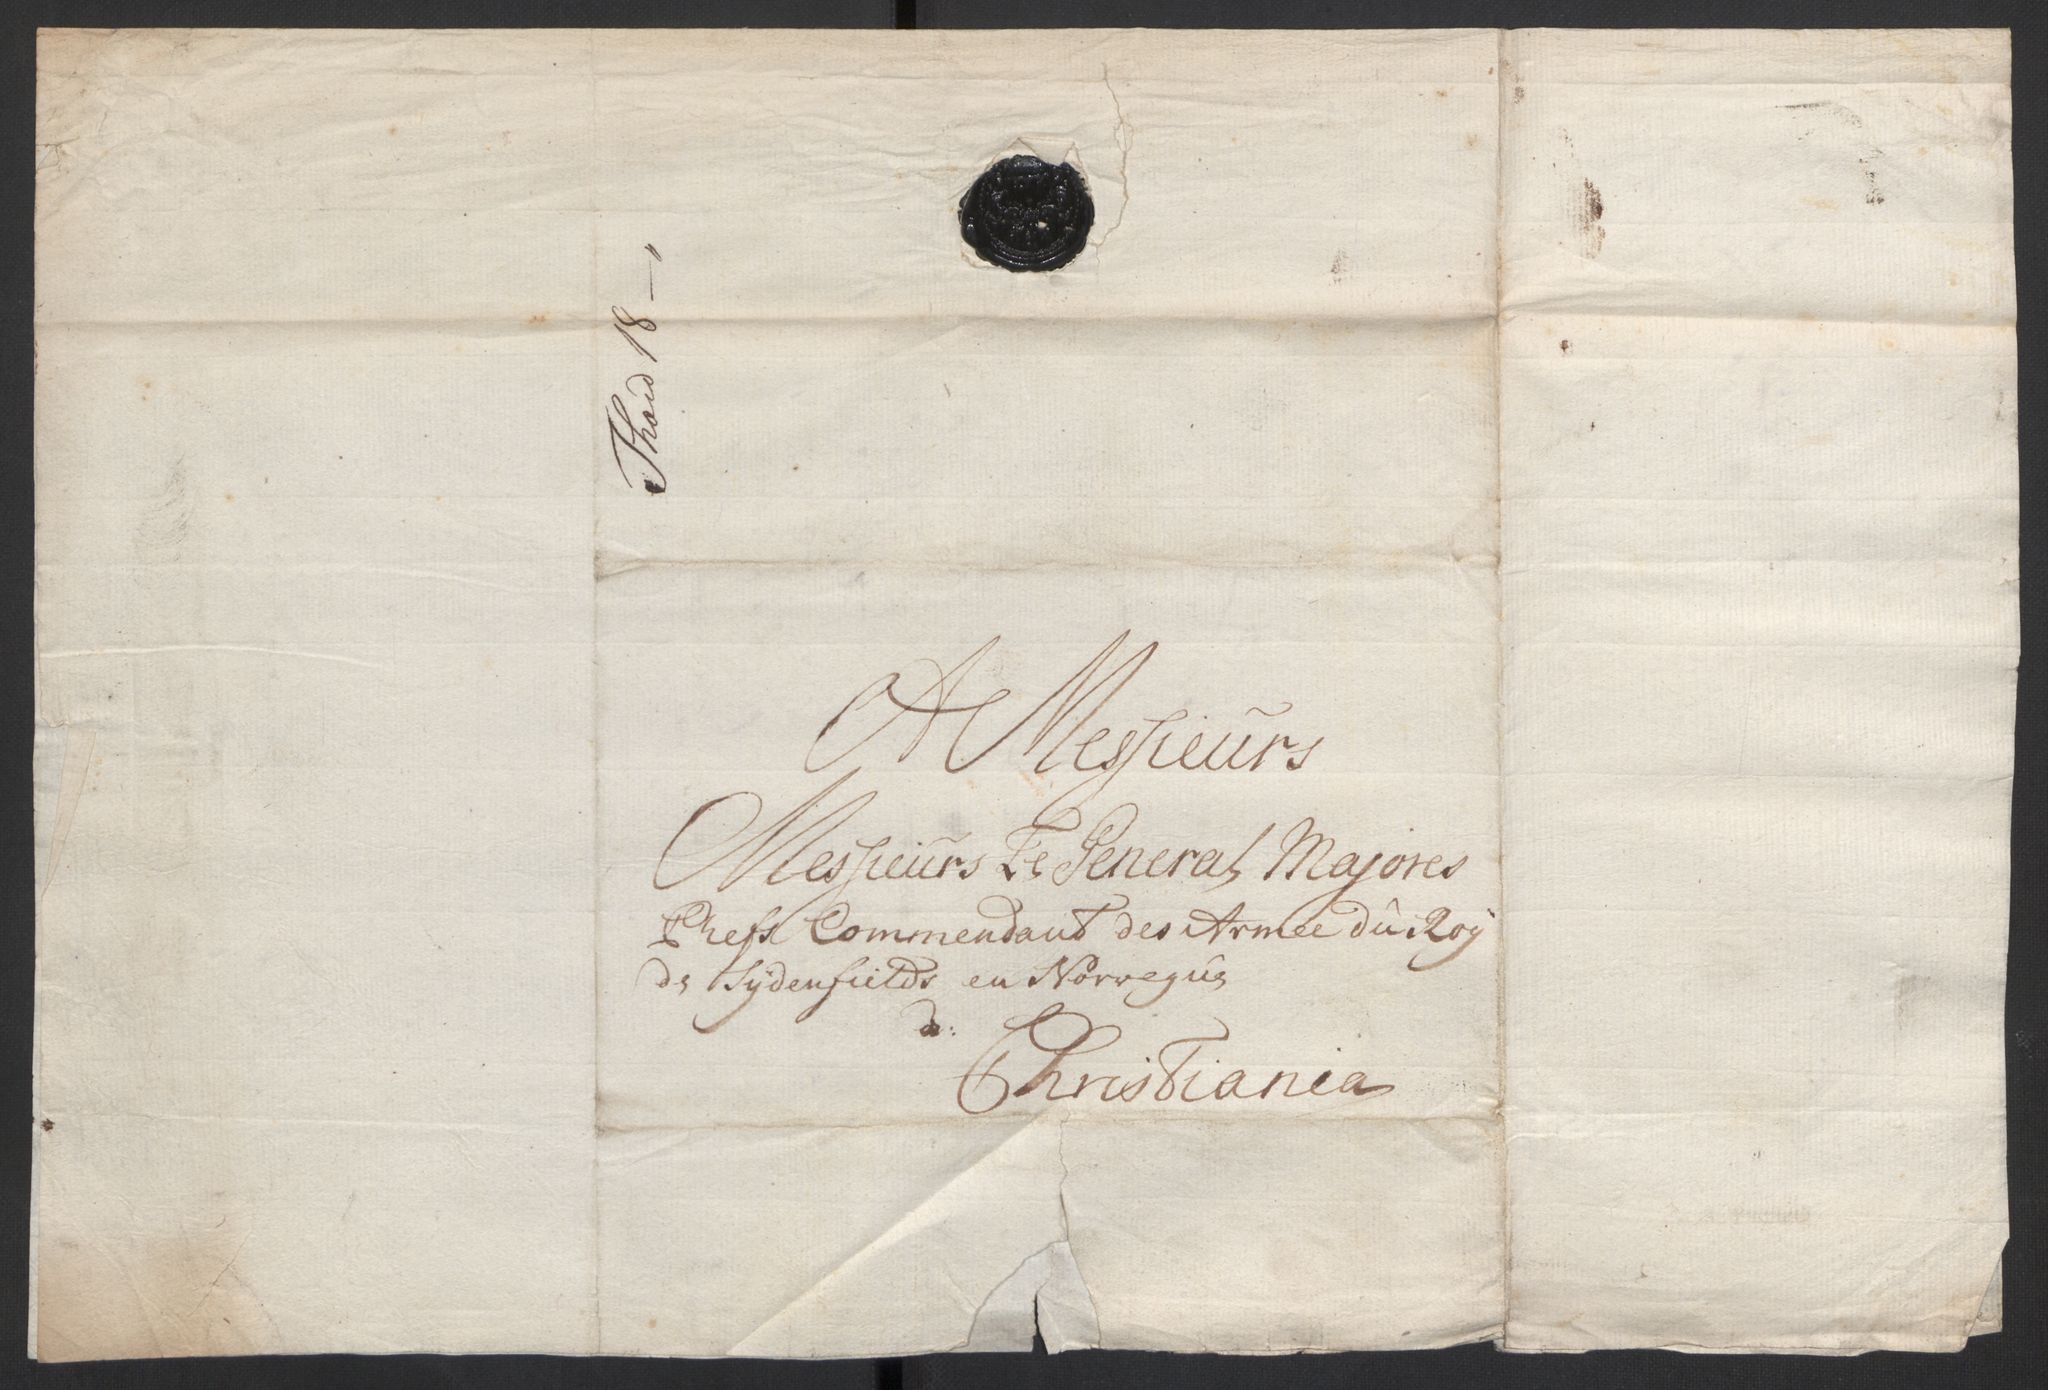 Thoid 18 —"
A Messieurs
Messieurs Le General Majores
Chefs Commendant des Armee du Roÿ
de Sÿdenfields en Norvegue
a:
Christiania